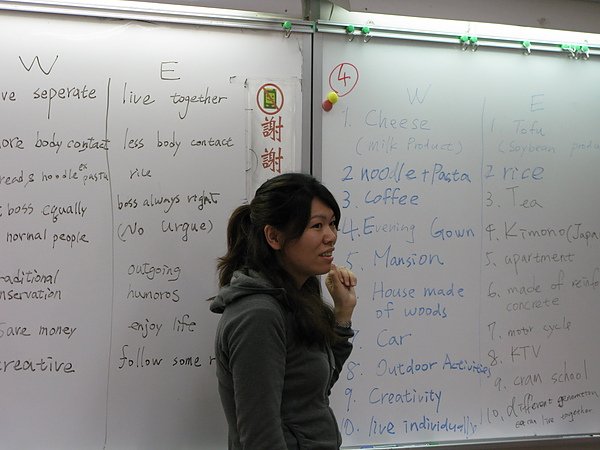 W E
ve seperate live together
ore body contact less body contact
read, s noodle ex pasta rice
boss eqally boss always right
normal people (No Urgue)
raditional outgoing
nservation humoros
save money enjoy life
creative follow some r
謝
謝
4
W E
1. Cheese 1. Tofu
(Milk Product) (Soybean produ
2 noodle + Pasta 2 rice
3. Coffee 3. Tea
4. Evening Gown 4. Kimono (Japa
5. Mansion 5. apartment
House made 6. made of reinfo
of woods concrete
7. Car 7. motor cycle
8. Outdoor Activities 8. KTV
9. Creativity 9. cram school
10. live individually 10. different
live together